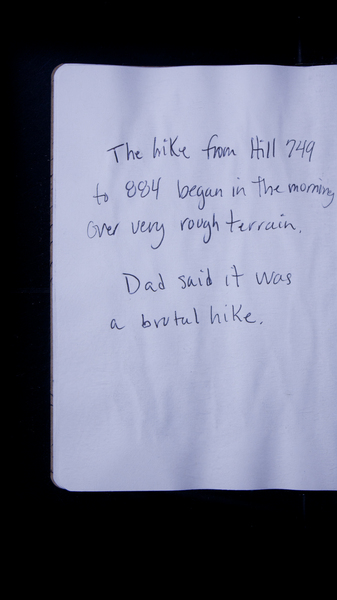 The hike from Hill 749
to 884 began in the morning
over very rough terrain.
Dad said it was
a brutal hike.